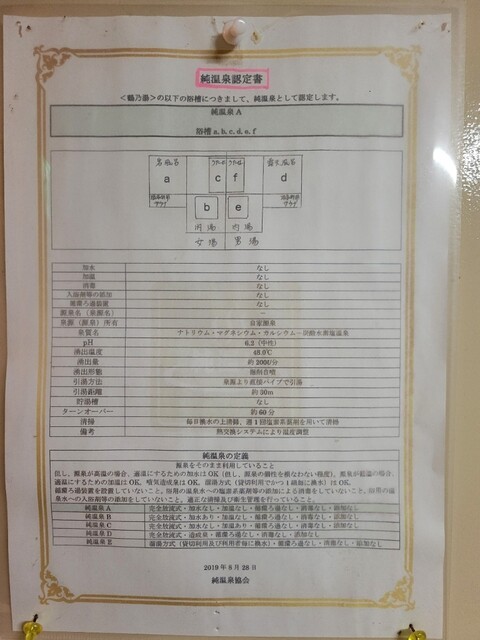 純温泉認定書
＜鶴乃湯＞の以下の浴槽につきまして、純温泉として認定します。
純温泉A
浴槽 a, b, c, d, e, f
露天風呂
a
c
f
d
b
e
内湯
内湯
女湯
男湯
加水 なし
加温 なし
消毒 なし
入浴剤等の添加 なし
循環ろ過装置 なし
源泉名（泉源名） －
泉源（源泉）所有 自家源泉
泉質名 ナトリウム・マグネシウム・カルシウム－炭酸水素塩温泉
pH 6.2（中性）
湧出温度 48.0℃
湧出量 約200ℓ/分
湧出形態 掘削自噴
引湯方法 泉源より直接パイプで引湯
引湯距離 約30m
貯湯槽 なし
ターンオーバー 約60分
清掃 毎日換水の上清掃、週1回塩素系薬剤を用いて清掃
備考 熱交換システムにより温度調整
純温泉の定義
源泉をそのまま利用していること
但し、源泉が高温の場合、適温にするための加水はOK（但し、源泉の個性を損なわない程度）。源泉が低温の場合、
適温にするための加温はOK。噴気造成泉はOK。溜湯方式（貸切利用でかつ1組毎に換水）はOK。
循環ろ過装置を設置していないこと。浴用の温泉水への塩素系薬剤等の添加による消毒をしていないこと。浴用の温
泉水への入浴剤等の添加をしていないこと。適正な清掃及び衛生管理を行っていること。
純温泉A 完全放流式・加水なし・加温なし・循環ろ過なし・消毒なし・添加なし
純温泉B 完全放流式・加水あり・加温なし・循環ろ過なし・消毒なし・添加なし
純温泉C 完全放流式・加水なし・加温あり・循環ろ過なし・消毒なし・添加なし
純温泉D 完全放流式・造成泉・循環ろ過なし・消毒なし・添加なし
純温泉E 溜湯方式（貸切利用及び利用者毎に換水）・循環ろ過なし・消毒なし・添加なし
2019年8月28日
純温泉協会